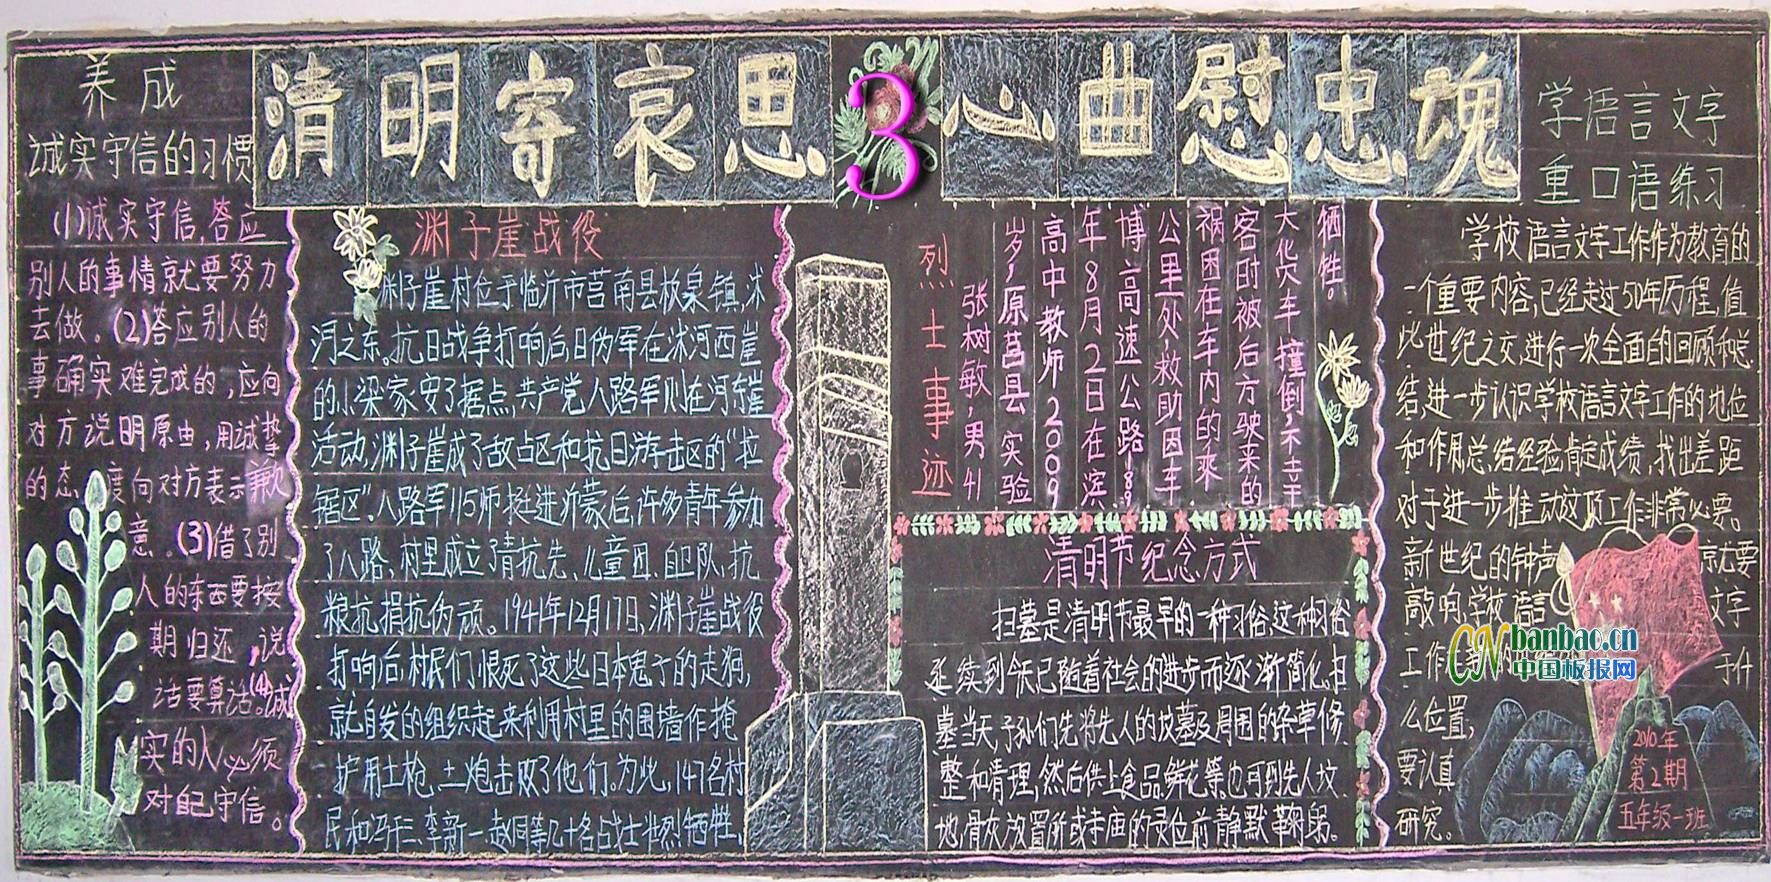 清明寄哀思
3
心曲慰忠魂
养成
诚实守信的习惯
(1)诚实守信,答应
别人的事情就要努力
去做。(2)答应别人的
事确实难完成的,应向
对方说明原由,用诚挚
的态度向对方表示歉
意。(3)借了别
人的东西要按
期归还,说
话要算话。(4)诚
实的人必须
对自己守信。
渊子崖战役
渊子崖村位于临沂市莒南县板泉镇,沭
河之东。抗日战争打响后,日伪军在沭河西崖
的小梁家安了据点,共产党八路军则在河东崖
活动,渊子崖成了敌占区和抗日游击区的"拉
锯区"。八路军115师挺进沂蒙后,许多青年参加
了八路,村里成立了青抗先、儿童团、自卫队,抗
粮抗捐抗伪顽。1941年12月17日,渊子崖战役
打响后村民们恨死了这些日本鬼子的走狗,
就自发的组织起来利用村里的围墙作掩
护用土枪、土炮击败了他们。为此,147名村
民和冯干三、李新一、赵同等几十名战士壮烈牺牲。
烈士事迹
张树敏,男41
岁,原莒县实验
高中教师2009
年8月2日在滨
博高速公路189
公里处,救助因车
祸困在车内的乘
客时被后方驶来的
大货车撞倒,不幸
牺牲。
清明节纪念方式
扫墓是清明节最早的一种习俗,这种习俗
延续到今天,已随着社会的进步而逐渐简化。扫
墓当天,子孙们先将先人的坟墓及周围的杂草修
整和清理,然后供上食品鲜花等,也可到先人坟
地,骨灰放置所或寺庙的灵位前静默鞠躬。
学语言文字
重口语练习
学校语言文字工作作为教育的
一个重要内容,已经走过50年历程,值
此世纪之交,进行一次全面的回顾和总
结,进一步认识学校语言文字工作的地位
和作用,总结经验,肯定成绩,找出差距
对于进一步推动这项工作非常必要。
新世纪的钟声 就要
敲响,学校语言 文字
工作 于什
么位置,
要认真
研究。
CN banbao.cn
中国板报网
2010年
第2期
五年级一班